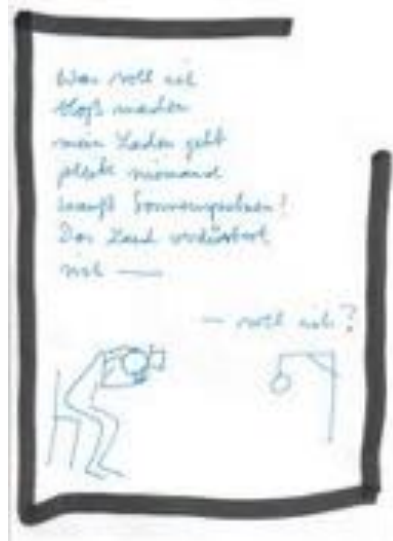 Was soll ich
bloß machen
mein Laden geht
pleite niemand
kauft Sonnen
Das Land verdüstert
sich —
— soll ich?